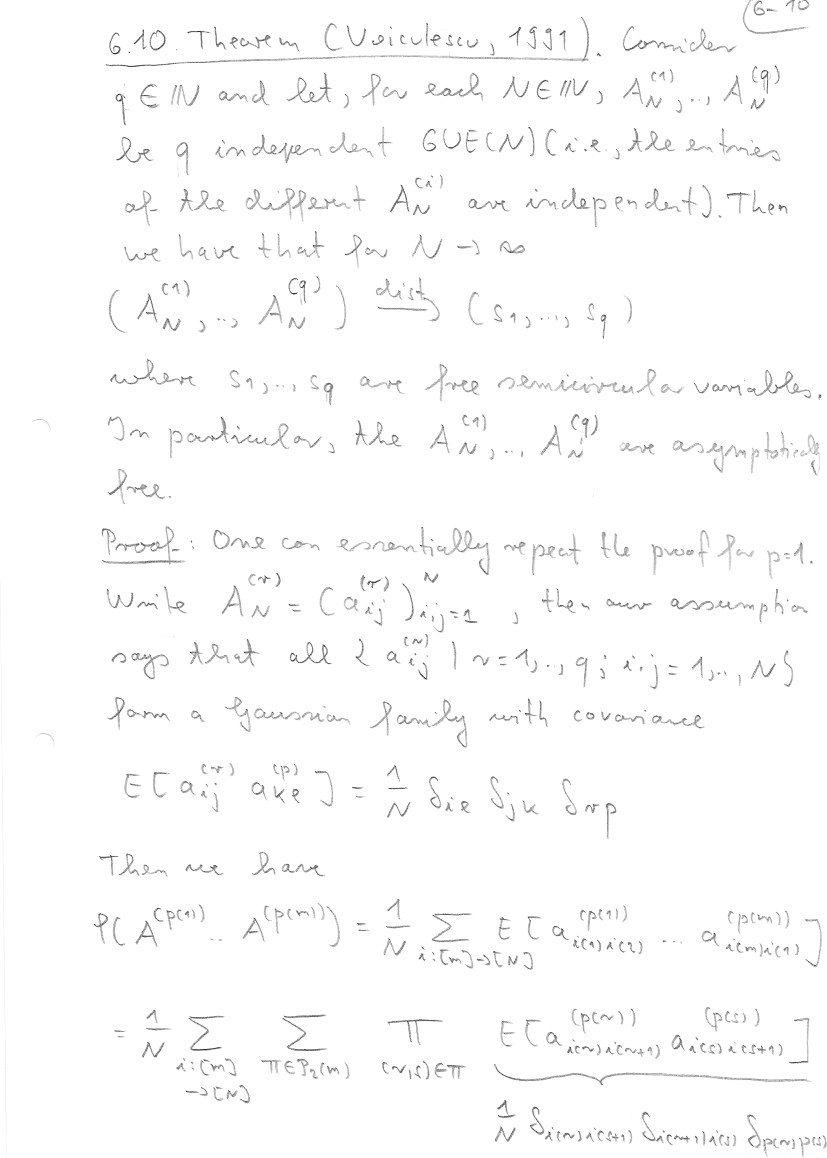 6-10
6.10. Theorem (Voiculescu, 1991). Consider
q ∈ ℕ and let, for each N ∈ ℕ, A_N^{(1)}, .., A_N^{(q)}
be q independent GUE(N) (i.e., the entries
of the different A_N^{(i)} are independent). Then
we have that for N → ∞
(A_N^{(1)}, .., A_N^{(q)}) \xrightarrow{dist} (s_1, ..., s_q)
where s_1, .., s_q are free semicircular variables.
In particular, the A_N^{(1)}, .., A_N^{(q)} are asymptotically
free.
Proof: One can essentially repeat the proof for p=1.
Write A_N^{(r)} = (a_{ij}^{(r)})_{i,j=1}^N, then our assumption
says that all { a_{ij}^{(r)} | r=1,..,q; i,j=1,..,N}
form a Gaussian family with covariance
E[a_{ij}^{(r)} a_{kl}^{(p)}] = \frac{1}{N} δ_{il} δ_{jk} δ_{rp}
Then we have
φ(A^{(p(1))} .. A^{(p(m))}) = \frac{1}{N} \sum_{i:[m]→[N]} E[a_{i(1)i(2)}^{(p(1))} ... a_{i(m)i(1)}^{(p(m))}]
= \frac{1}{N} \sum_{i:[m]→[N]} \sum_{π∈P_2(m)} \prod_{(r,s)∈π} E[a_{i(r)i(r+1)}^{(p(r))} a_{i(s)i(s+1)}^{(p(s))}]
\frac{1}{N} δ_{i(r)i(s+1)} δ_{i(r+1)i(s)} δ_{p(r)p(s)}